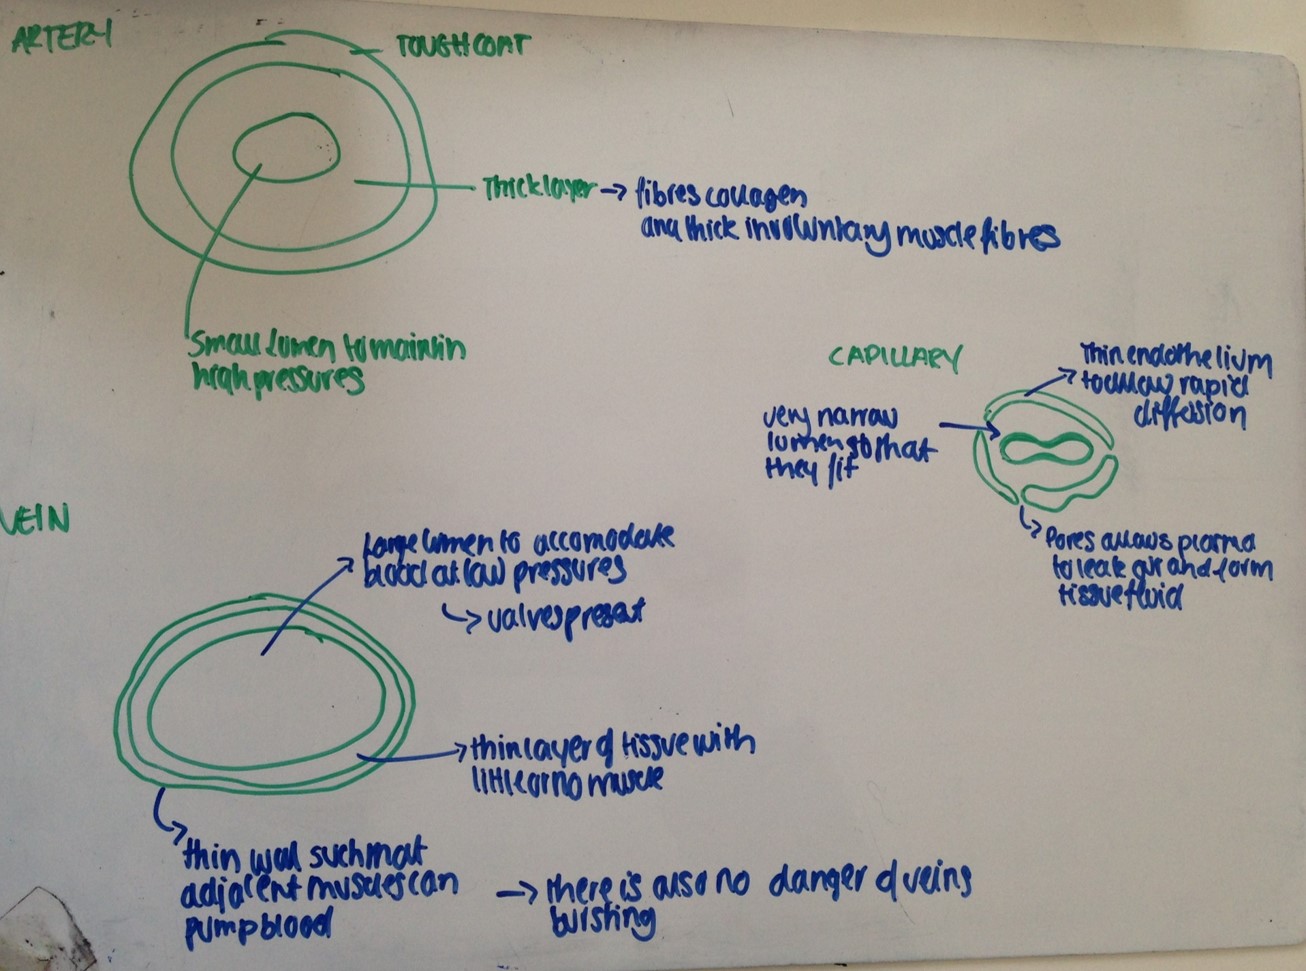 ARTERY
TOUGH COAT
Thick layer → fibres collagen
and thick involuntary muscle fibres
Small lumen to maintain
high pressures
CAPILLARY
Thin endothelium
to allow rapid
diffusion
very narrow
lumen so that
they fit
Pores allows plasma
to leak out and form
tissue fluid
VEIN
Large lumen to accomodate
blood at low pressures
↳ valves present
thin layer of tissue with
little or no muscle
thin wall such that
adjacent muscles can
pump blood
→ there is also no danger of veins
bursting